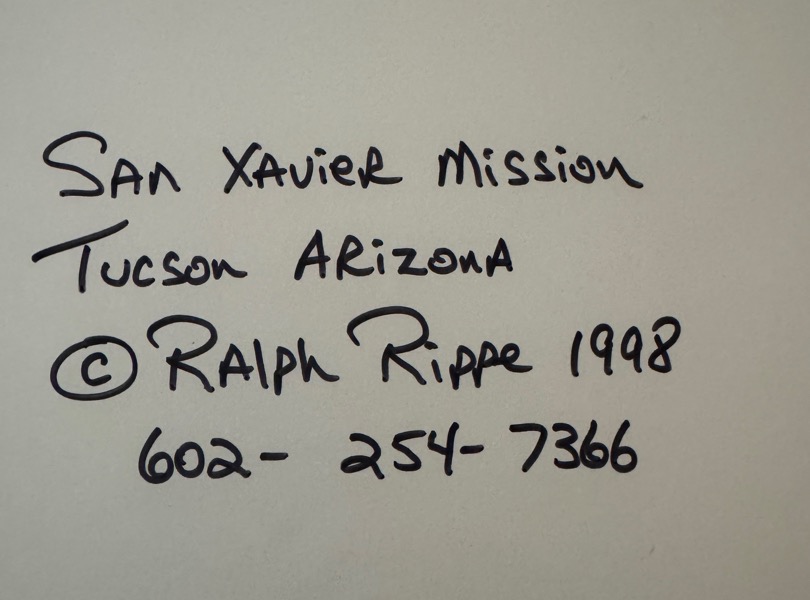 San Xavier Mission
Tucson Arizona
© Ralph Rippe 1998
602- 254-7366